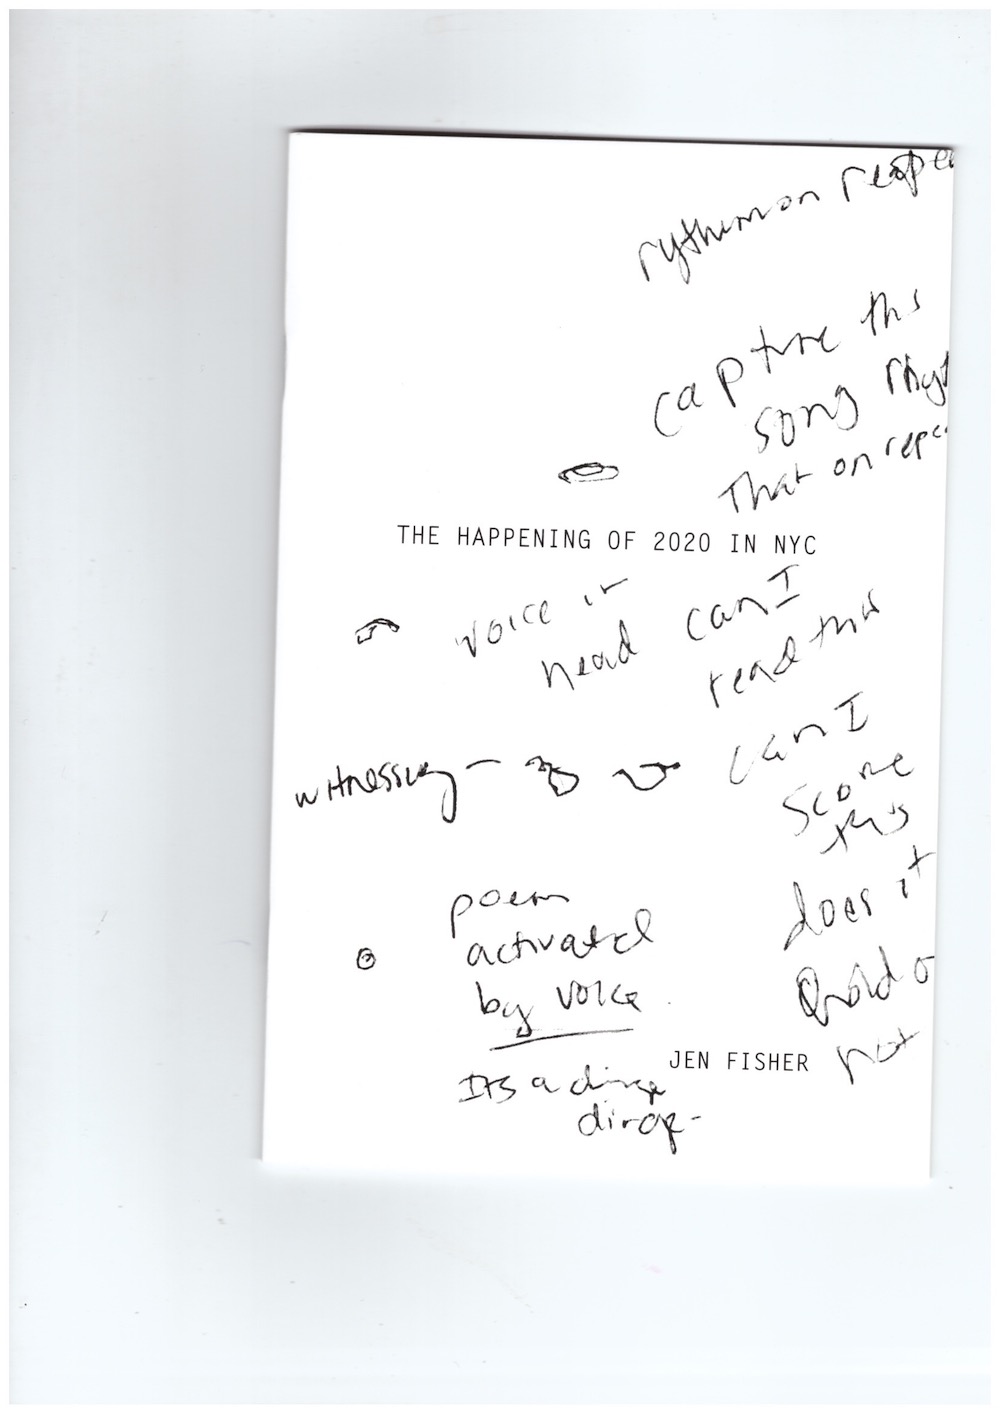 rythum on
capture ths
song rhyt
That on repe
THE HAPPENING OF 2020 IN NYC
voice in
head
can I
read this
witnessing –
can I
score
this
poem
activated
by voice
does it
not
JEN FISHER
Its a dirge
dirge-